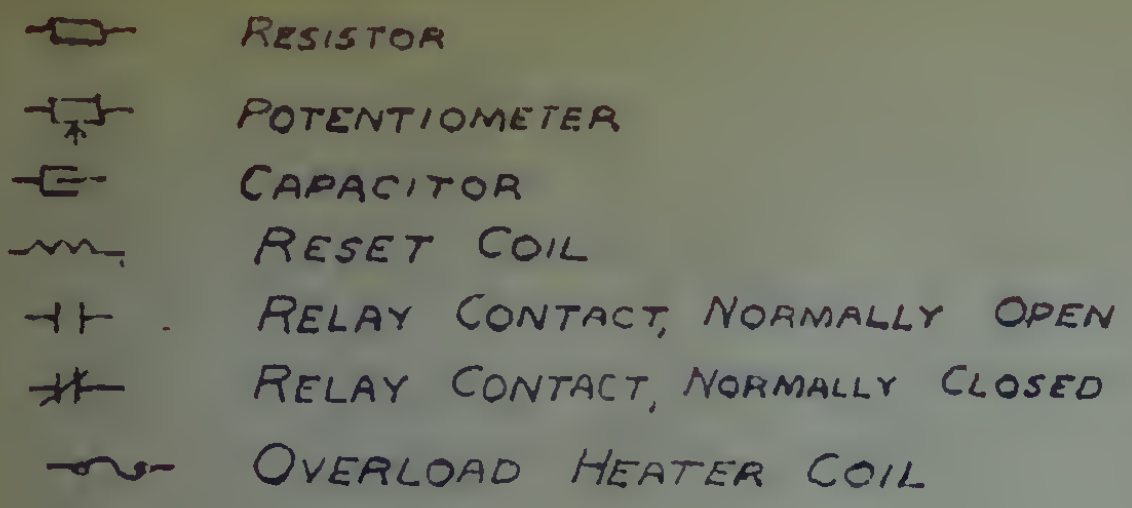 RESISTOR
POTENTIOMETER
CAPACITOR
RESET COIL
RELAY CONTACT, NORMALLY OPEN
RELAY CONTACT, NORMALLY CLOSED
OVERLOAD HEATER COIL